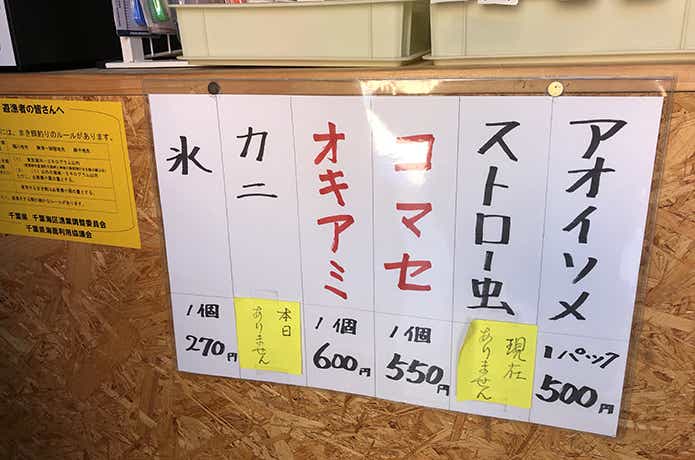 アオイソメ
1パック
500円
ストロー虫
現在
ありません
コマセ
1個
550円
オキアミ
1個
600円
カニ
本日
ありません
氷
1個
270円
遊漁者の皆さんへ
千葉県 千葉海区漁業調整委員会
千葉県海面利用協議会